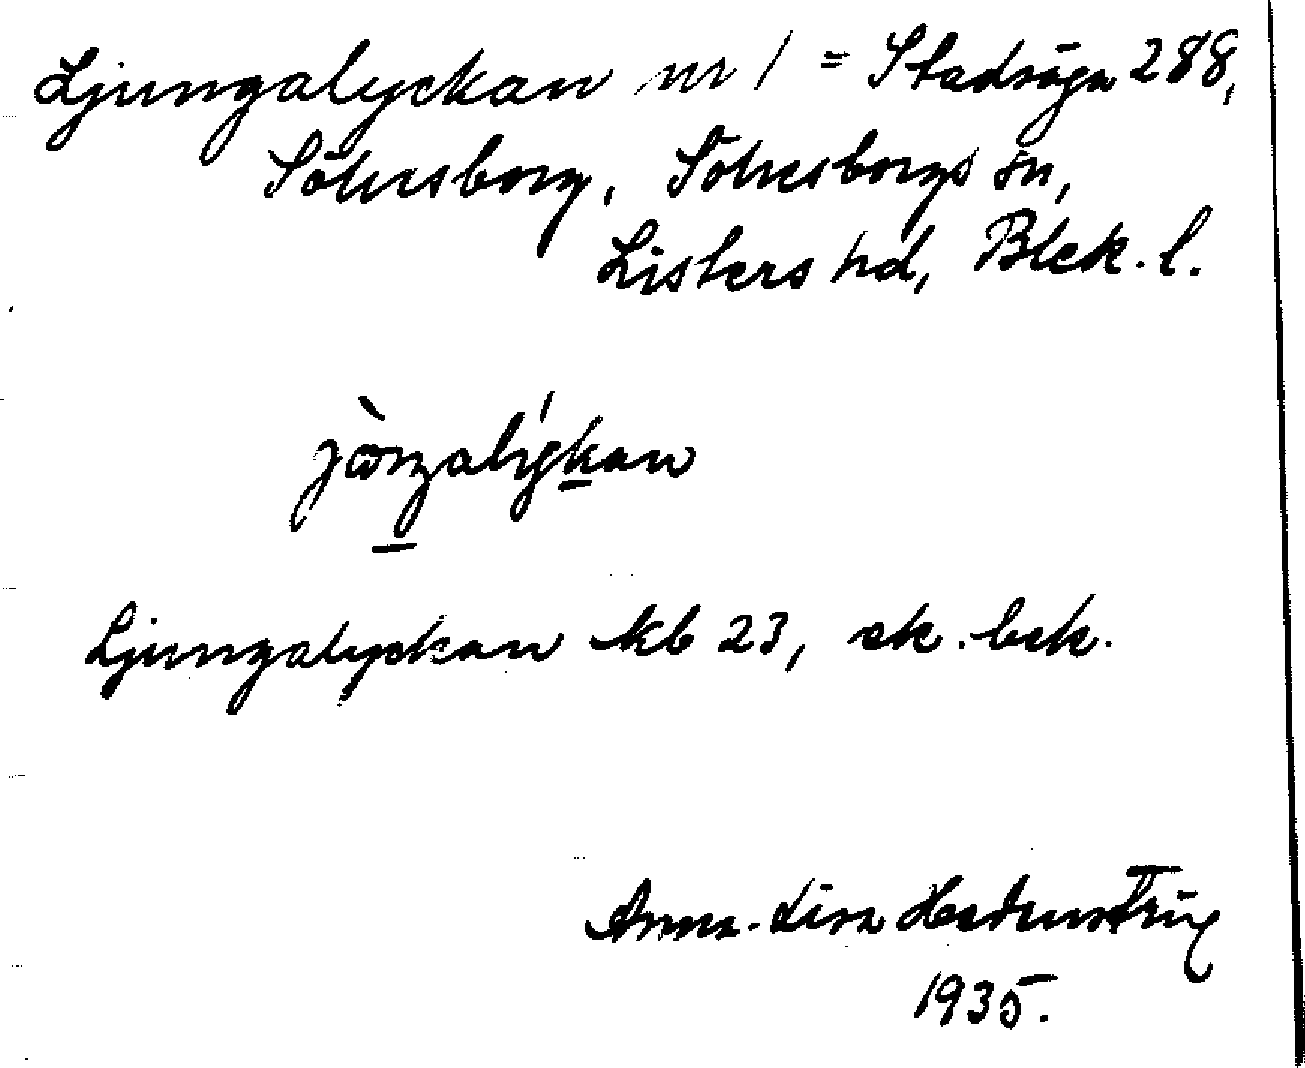 Ljungalyckan nr 1 = Stadsäga 288,
Sölvesborg, Sölvesborgs sn,
Listers hd, Blek. l.
Ljungalyckan kb 23, ek. bek.
Anna-Lisa
1935.